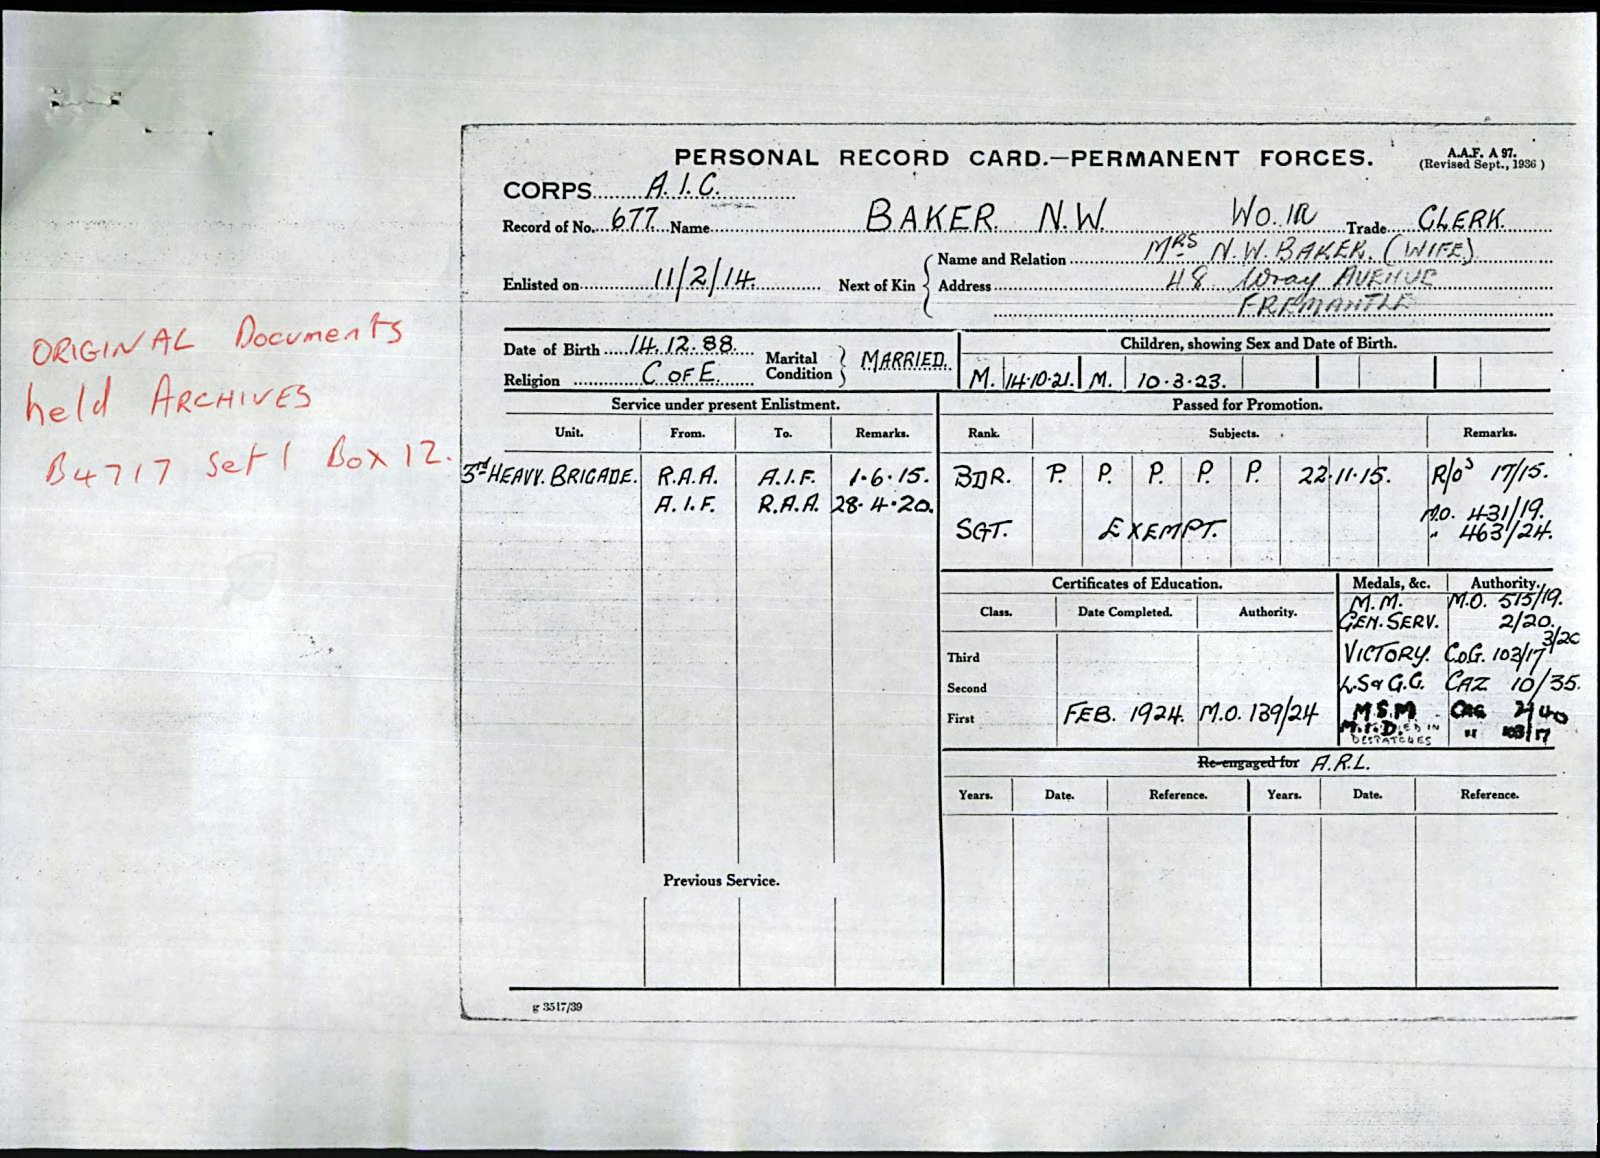 PERSONAL RECORD CARD.—PERMANENT FORCES.
A.A.F. A 97.
(Revised Sept., 1936)
CORPS A.I.C.
Record of No. 677 Name BAKER N.W. WO.1R Trade CLERK.
Enlisted on 11/2/14. Next of Kin
Name and Relation MRS N.W. BAKER. (WIFE)
Address 48 Wray AVENUE
FREMANTLE
ORIGINAL Documents
held ARCHIVES
B4717 Set 1 Box 12.
Date of Birth 14.12.88. Marital Condition MARRIED.
Religion C OF E.
Children, showing Sex and Date of Birth.
M. 14.10.21. M. 10.3.23.
Service under present Enlistment.
Unit. From. To. Remarks.
3rd HEAVY. BRIGADE. R.A.A. A.I.F. 1.6.15.
A.I.F. R.A.A. 28.4.20.
Previous Service.
Passed for Promotion.
Rank. Subjects. Remarks.
BDR. P. P. P. P. P. 22.11.15. R/O's 17/15.
M.O. 431/19.
SGT. EXEMPT. " 463/24.
Certificates of Education.
Class. Date Completed. Authority.
Third
Second
First FEB. 1924. M.O. 139/24
Medals, &c. Authority.
M.M. M.O. 515/19.
GEN. SERV. 2/20.
3/20
VICTORY. C.o.G. 103/17
L.S & G.C. CAZ 10/35.
M S M CAG 2/40
M.I.D. " 103/17
DESPATCHES
Re-engaged for A.R.L.
Years. Date. Reference. Years. Date. Reference.
g 3517/39